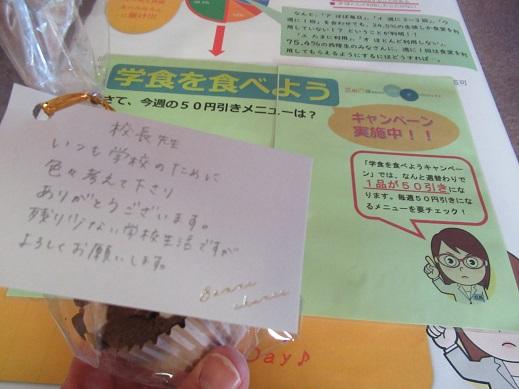 なんと、「ア ほぼ毎日」、「イ 週に2~3回」、「ウ
週に1回」を合わせても、24.6%の生徒しか食堂を利
用していない!? ということが判明!!
「エ たまに利用」、「オ ほとんど利用しない」、
75.4%の西陵生のみなさんに、週に1回は食堂を利
用してもらえるようにするにはどうすれば…。
学食を食べよう
さて、今週の50円引きメニューは?
キャンペーン
実施中!!
「学食を食べようキャンペー
ン」では、なんと週替わりで
1品が50引きにな
ります。毎週50円引きにな
るメニューを要チェック!
校長先生
いつも学校のために
色々考えて下さり
ありがとうございます。
残り少ない学校生活ですが
よろしくお願いします。
Day♪